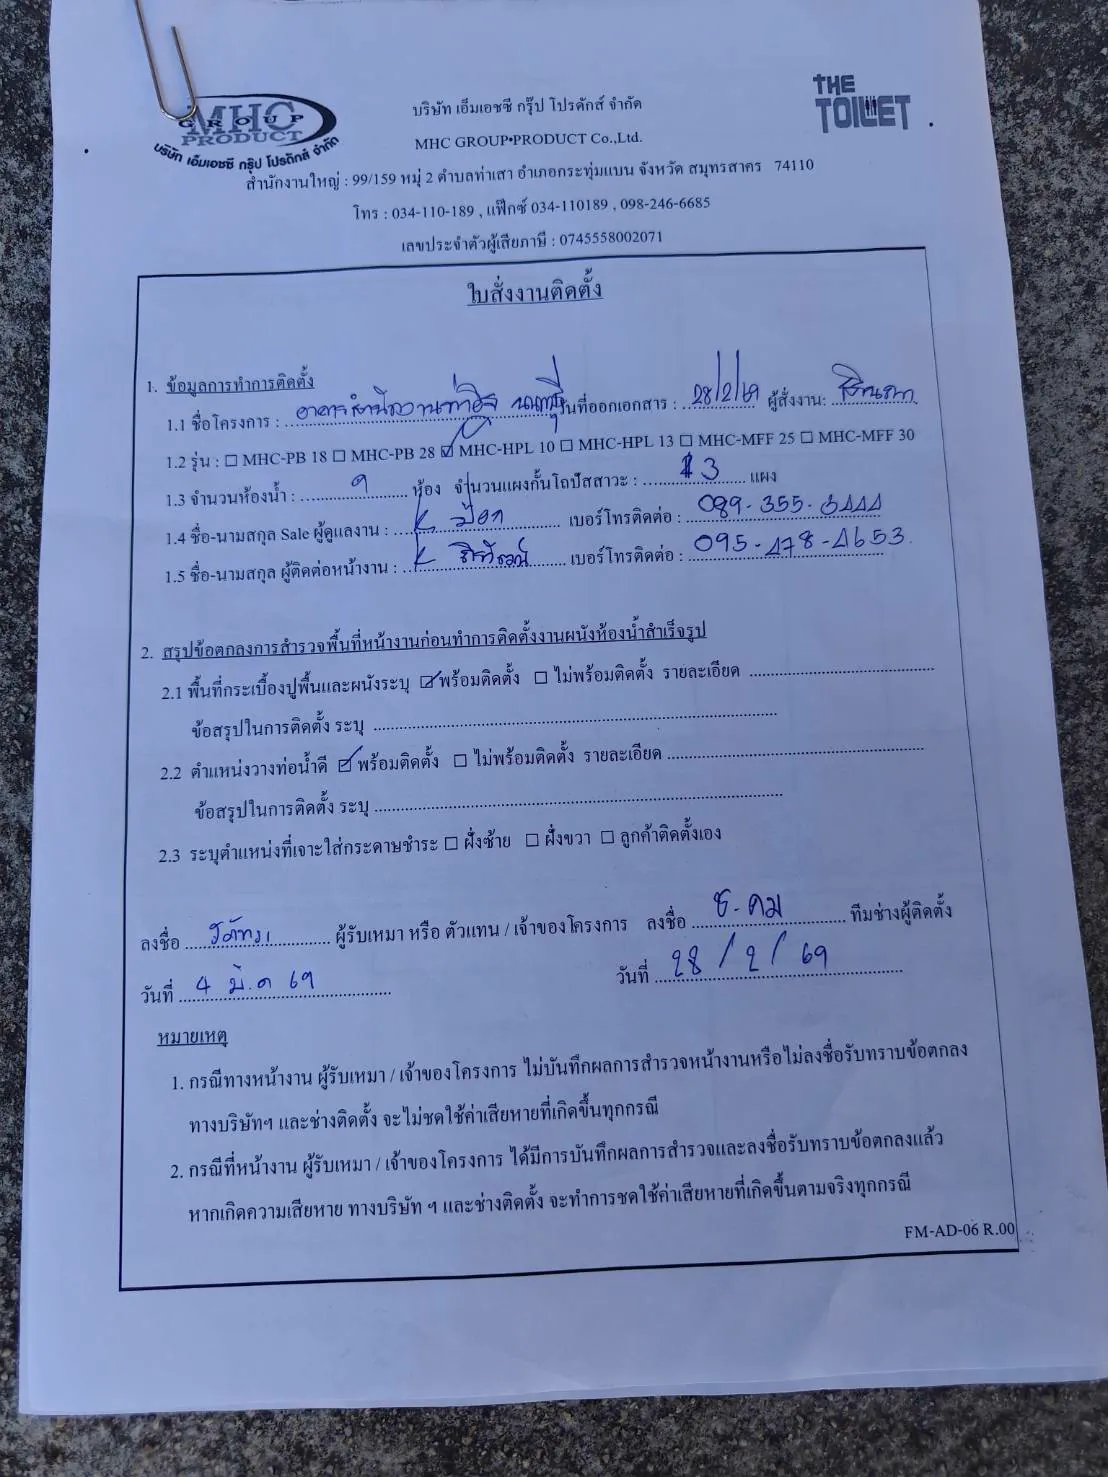 MHC
GROUP
PRODUCT
บริษัท เอ็มเอชซี กรุ๊ป โปรดักส์ จำกัด
THE
TOILET
บริษัท เอ็มเอชซี กรุ๊ป โปรดักส์ จำกัด
MHC GROUP•PRODUCT Co.,Ltd.
สำนักงานใหญ่ : 99/159 หมู่ 2 ตำบลท่าเสา อำเภอกระทุ่มแบน จังหวัด สมุทรสาคร 74110
โทร : 034-110-189 , แฟ็กซ์ 034-110189 , 098-246-6685
เลขประจำตัวผู้เสียภาษี : 0745558002071
ใบสั่งงานติดตั้ง
1. ข้อมูลการทำการติดตั้ง
1.1 ชื่อโครงการ : อาคารสำนักงาน วันที่ออกเอกสาร : 28/2/69 ผู้สั่งงาน:
1.2 รุ่น : ☐ MHC-PB 18 ☐ MHC-PB 28 ☑ MHC-HPL 10 ☐ MHC-HPL 13 ☐ MHC-MFF 25 ☐ MHC-MFF 30
1.3 จำนวนห้องน้ำ : ห้อง จำนวนแผงกั้นโถปัสสาวะ : 3 แผง
1.4 ชื่อ-นามสกุล Sale ผู้ดูแลงาน : K เบอร์โทรติดต่อ : 089-355-3444
1.5 ชื่อ-นามสกุล ผู้ติดต่อหน้างาน : K เบอร์โทรติดต่อ : 095-478-4653
2. สรุปข้อตกลงการสำรวจพื้นที่หน้างานก่อนทำการติดตั้งงานผนังห้องน้ำสำเร็จรูป
2.1 พื้นที่กระเบื้องปูพื้นและผนังระบุ ☑ พร้อมติดตั้ง ☐ ไม่พร้อมติดตั้ง รายละเอียด
ข้อสรุปในการติดตั้ง ระบุ
2.2 ตำแหน่งวางท่อน้ำดี ☑ พร้อมติดตั้ง ☐ ไม่พร้อมติดตั้ง รายละเอียด
ข้อสรุปในการติดตั้ง ระบุ
2.3 ระบุตำแหน่งที่เจาะใส่กระดาษชำระ ☐ ฝั่งซ้าย ☐ ฝั่งขวา ☐ ลูกค้าติดตั้งเอง
ลงชื่อ ผู้รับเหมา หรือ ตัวแทน / เจ้าของโครงการ ลงชื่อ ธ. คม ทีมช่างผู้ติดตั้ง
วันที่ 4 มี.ค 69 วันที่ 28 / 2 / 69
หมายเหตุ
1. กรณีทางหน้างาน ผู้รับเหมา / เจ้าของโครงการ ไม่บันทึกผลการสำรวจหน้างานหรือไม่ลงชื่อรับทราบข้อตกลง
ทางบริษัทฯ และช่างติดตั้ง จะไม่ชดใช้ค่าเสียหายที่เกิดขึ้นทุกกรณี
2. กรณีที่หน้างาน ผู้รับเหมา / เจ้าของโครงการ ได้มีการบันทึกผลการสำรวจและลงชื่อรับทราบข้อตกลงแล้ว
หากเกิดความเสียหาย ทางบริษัท ฯ และช่างติดตั้ง จะทำการชดใช้ค่าเสียหายที่เกิดขึ้นตามจริงทุกกรณี
FM-AD-06 R.00